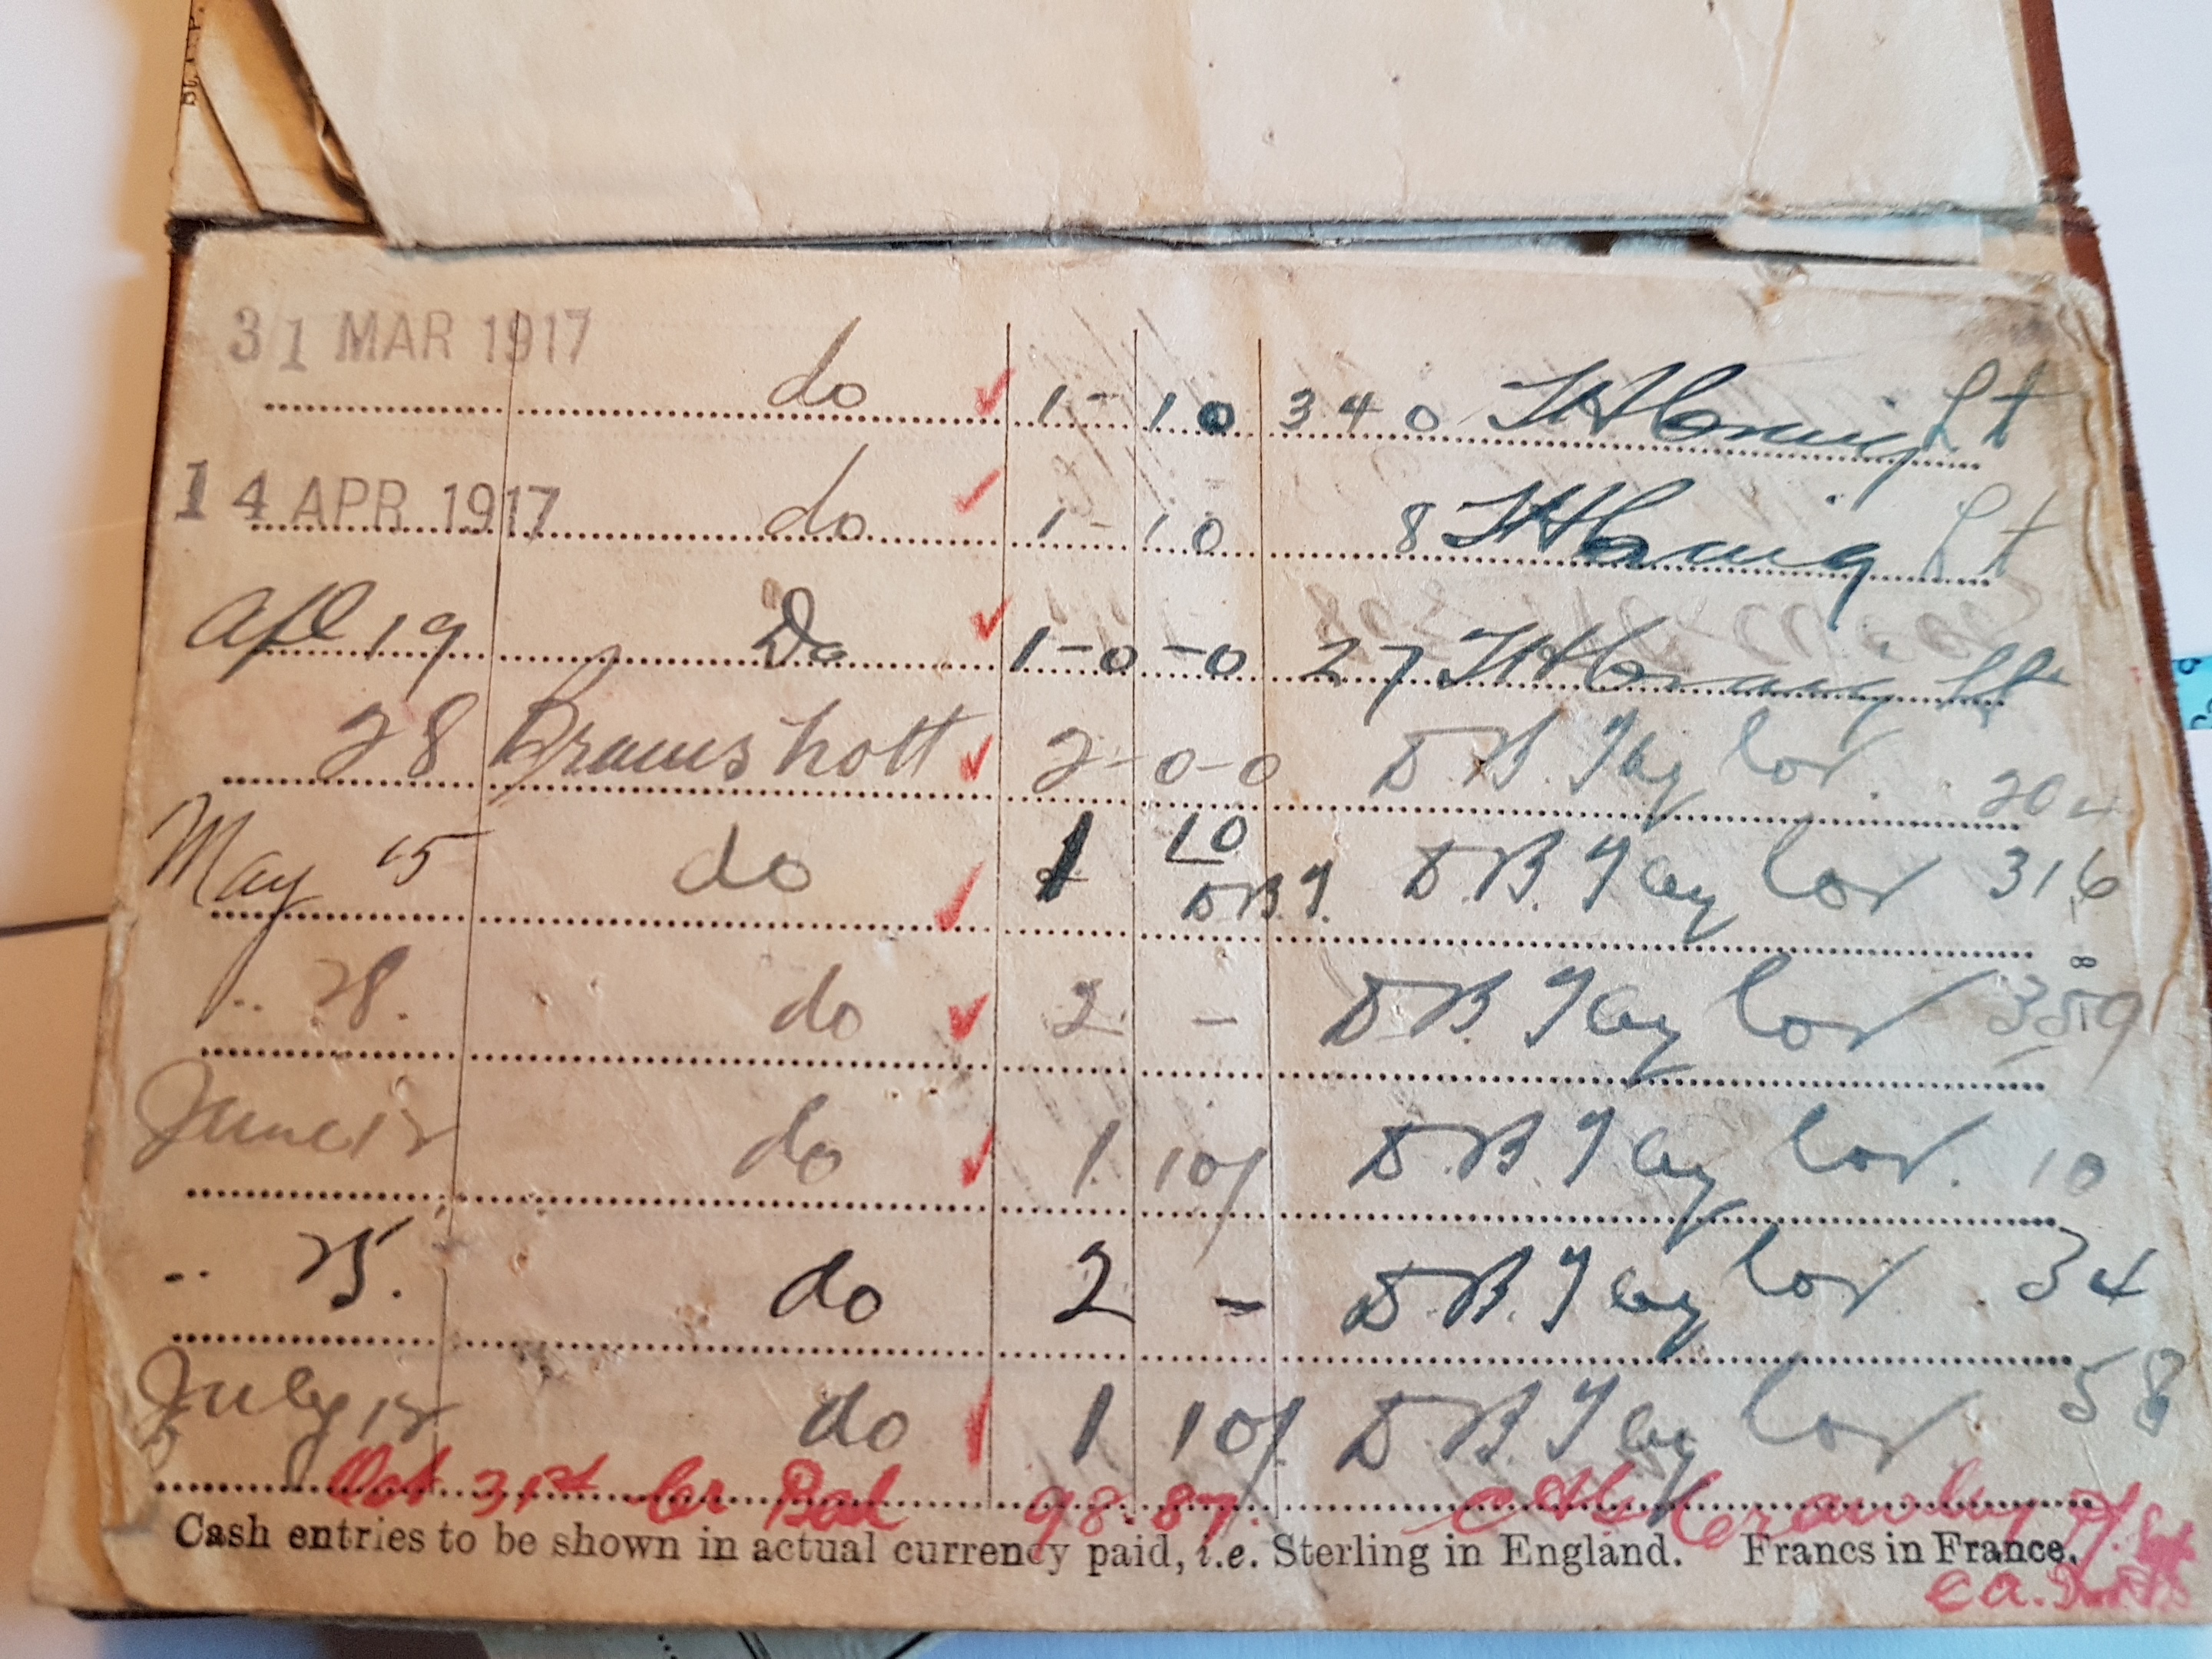 31 MAR 1917 do 1 - 10 340 Lt
14 APR 1917 do 1 - 10 8 Lt
Apl 19 Do 1-0-0 27 Lt
28 Bramshott 2-0-0 D.B. Taylor 204
May 15 do 1 10 D.B.T. D.B. Taylor 316
8
" 28. do 2 - D.B. Taylor 359
June 12 do 1 10/ D.B. Taylor. 10
" 25. do 2 - D.B. Taylor 34
July 12 do 1 10/ D.B. Taylor 58
Oct 31st Cr Bal 98.87. Crawley
Cash entries to be shown in actual currency paid, i.e. Sterling in England. Francs in France.